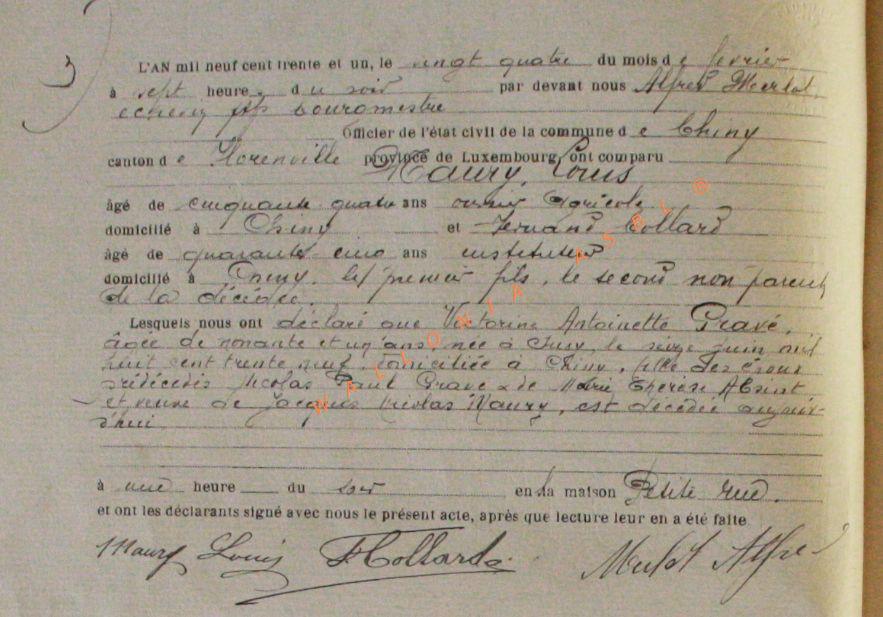 3
L'AN mil neuf cent trente et un, le vingt quatre du mois de fevrier
à sept heure s du soir par devant nous Alfred
échevin ffs bourgmestre
Officier de l'état civil de la commune de Chiny
canton de Florenville province de Luxembourg, ont comparu
Maury, Louis
âgé de cinquante quatre ans ouvrier agricole
domicilié à Chiny et Fernand Collard
âgé de quarante cinq ans instituteur
domicilié à Chiny, le premier fils, le second non parent
de la décédée.
Lesquels nous ont déclaré que Victorine Antoinette Pravé,
âgée de nonante et un ans, née à le seize juin mil
huit cent trente neuf, domiciliée à Chiny, fille des époux
prédécédés Nicolas Paul Pravé & de Marie Thérèse
et veuve de Jacques Nicolas Maury, est décédée aujour-
d'hui
à une heure du soir en la maison Petite rue.
et ont les déclarants signé avec nous le présent acte, après que lecture leur en a été faite
Maury Louis FCollard Alfred
WALLONIA ASBL ©